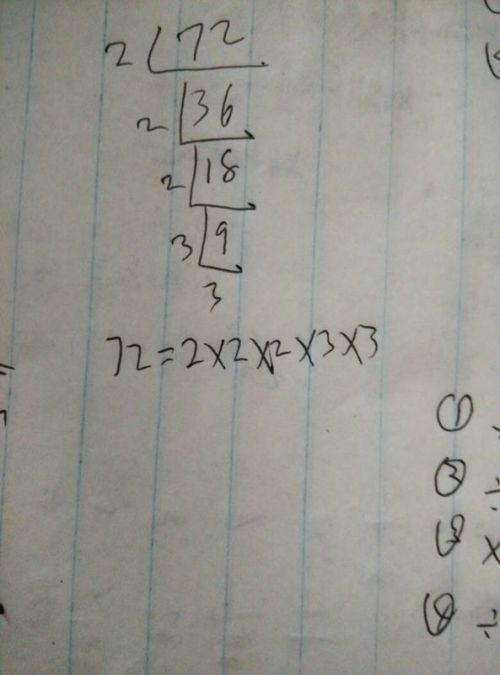 2 72
2 36
2 18
3 9
3
72=2×2×2×3×3
①
② ÷
③ ×
④ ÷